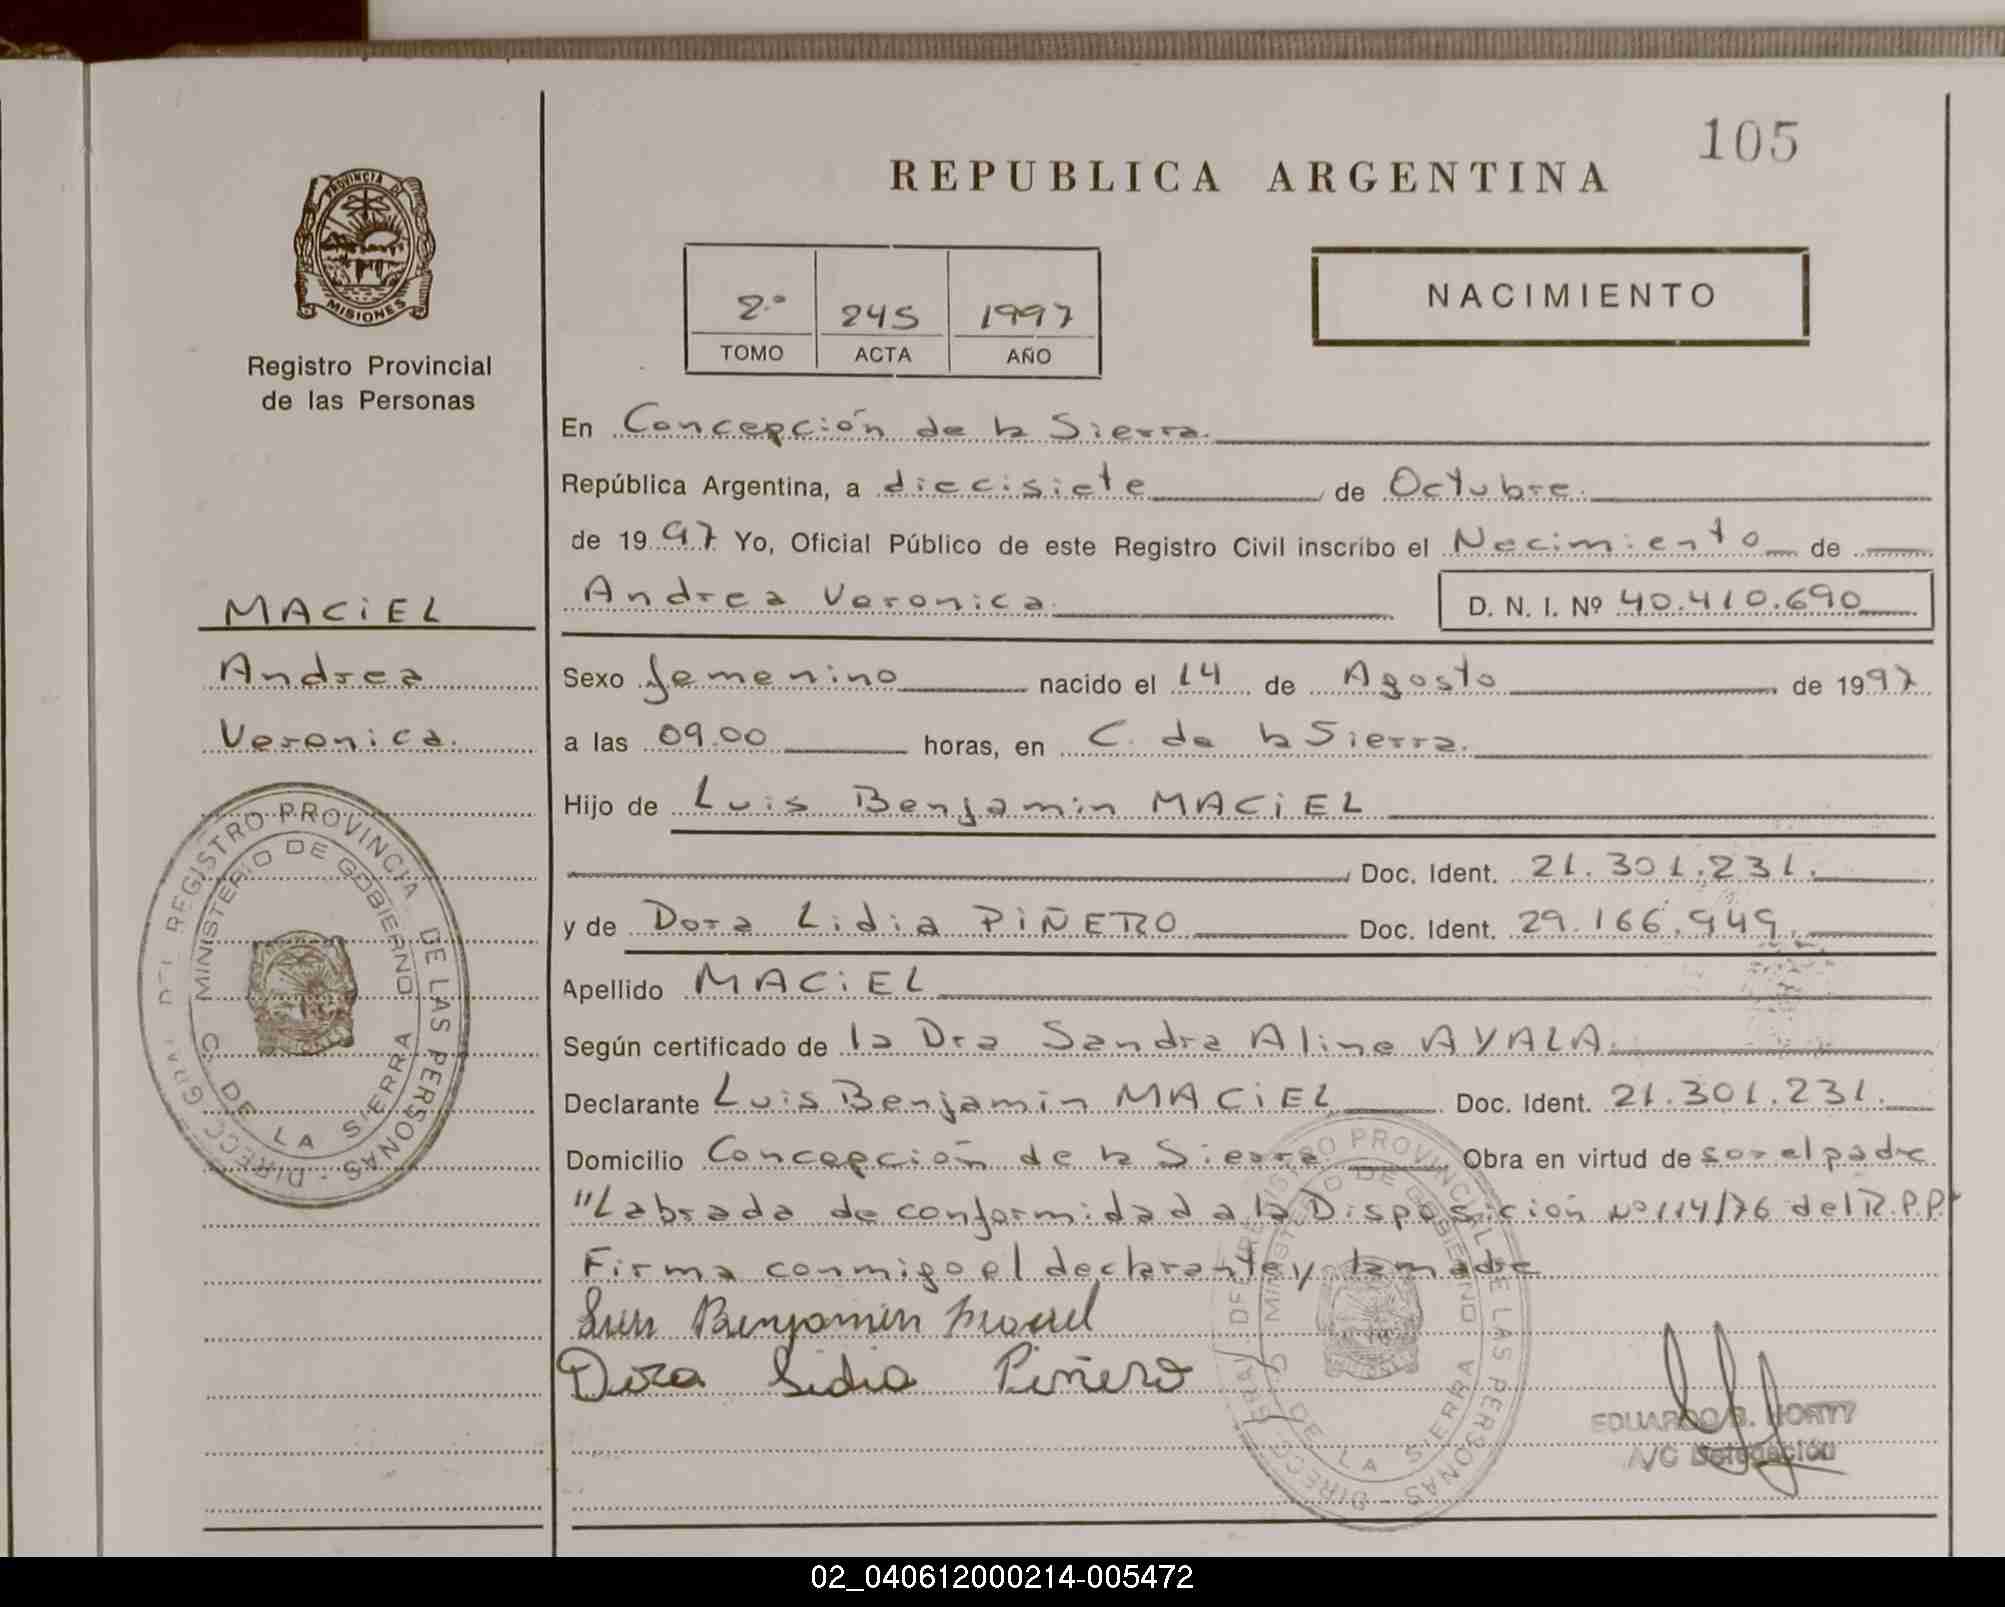 105
REPUBLICA ARGENTINA
PROVINCIA DE
MISIONES
Registro Provincial
de las Personas
NACIMIENTO
2º 245 1997
TOMO ACTA AÑO
En Concepción de la Sierra
República Argentina, a diecisiete de Octubre
de 1997 Yo, Oficial Público de este Registro Civil inscribo el Nacimiento de
Andrea Veronica D. N. I. Nº 40.410.690
MACiEL
Andrea
Veronica.
Sexo femenino nacido el 14 de Agosto de 1997
a las 09.00 horas, en C. de la Sierra.
Hijo de Luis Benjamin MACiEL
Doc. Ident. 21.301.231.
y de Dora Lidia PiÑERO Doc. Ident. 29.166.949.
Apellido MACiEL
Según certificado de la Dra Sandra Aline AYALA
Declarante Luis Benjamin MACiEL Doc. Ident. 21.301.231.
Domicilio Concepción de la Sierra Obra en virtud de ser el padre
"Labrada de conformidad a la Disposición Nº 114/76 del R.P.P"
Firma conmigo el declarante y la madre
Luis Benjamin Maciel
Dora Lidia Piñero
DIRECC GRAL DEL REGISTRO PROVINCIAL DE LAS PERSONAS
MINISTERIO DE GOBIERNO
C. DE LA SIERRA
DIRECC GRAL DEL REGISTRO PROVINCIAL DE LAS PERSONAS
MINISTERIO DE GOBIERNO
C. DE LA SIERRA
EDUARDO
A/C Delegación
02_040612000214-005472